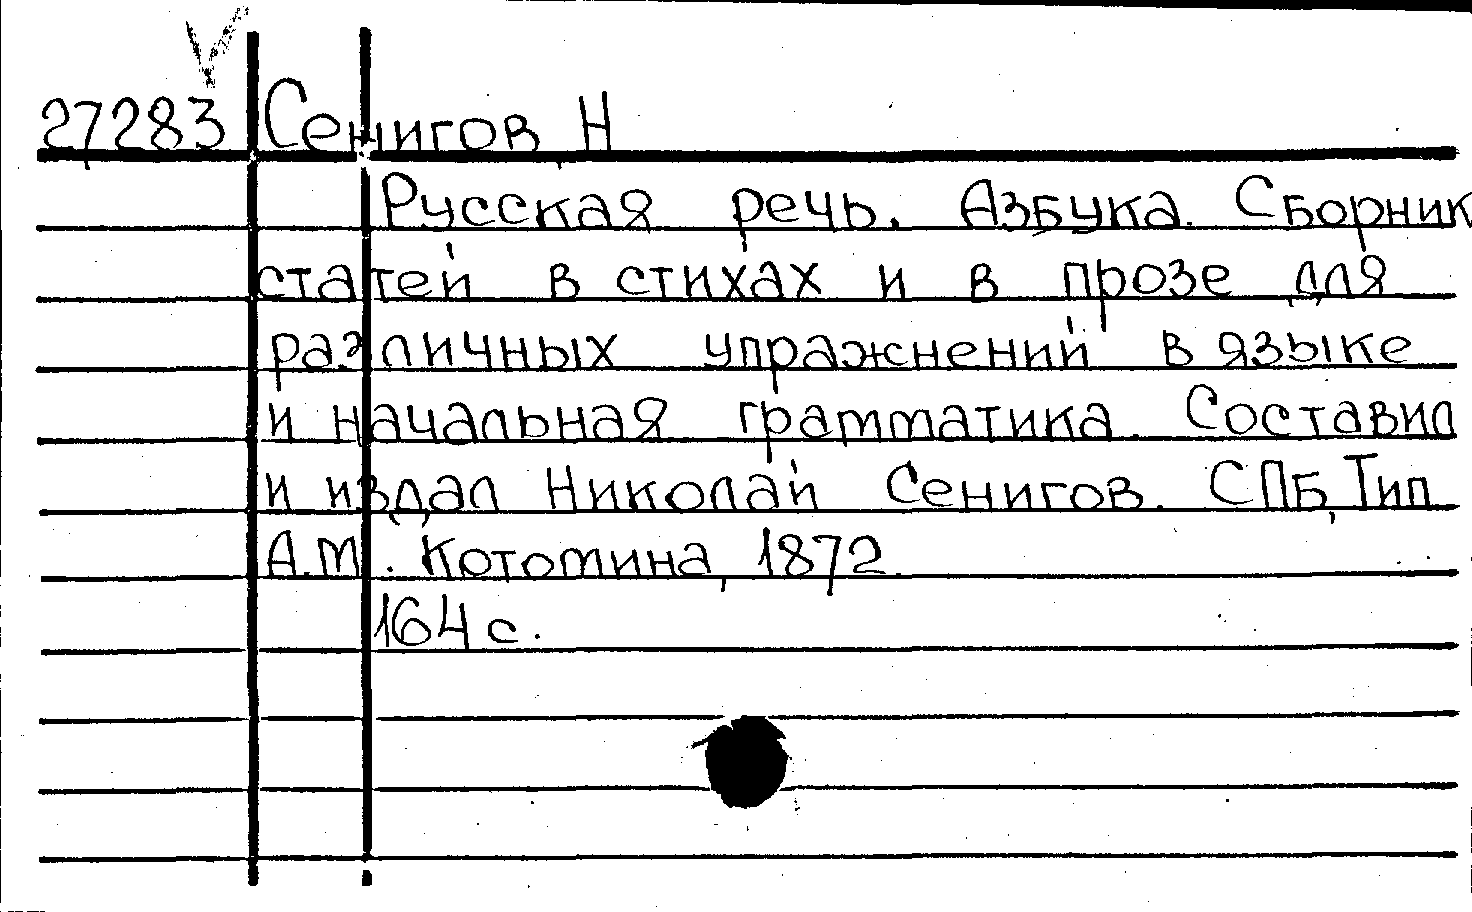 27283 Сенигов, Н
Русская речь. Азбука. Сборник
статей в стихах и в прозе для
различных упражнений в языке
и начальная грамматика. Составил
и издал Николай Сенигов. СПБ, Тип
А.М. Котомина, 1872.
164 с.